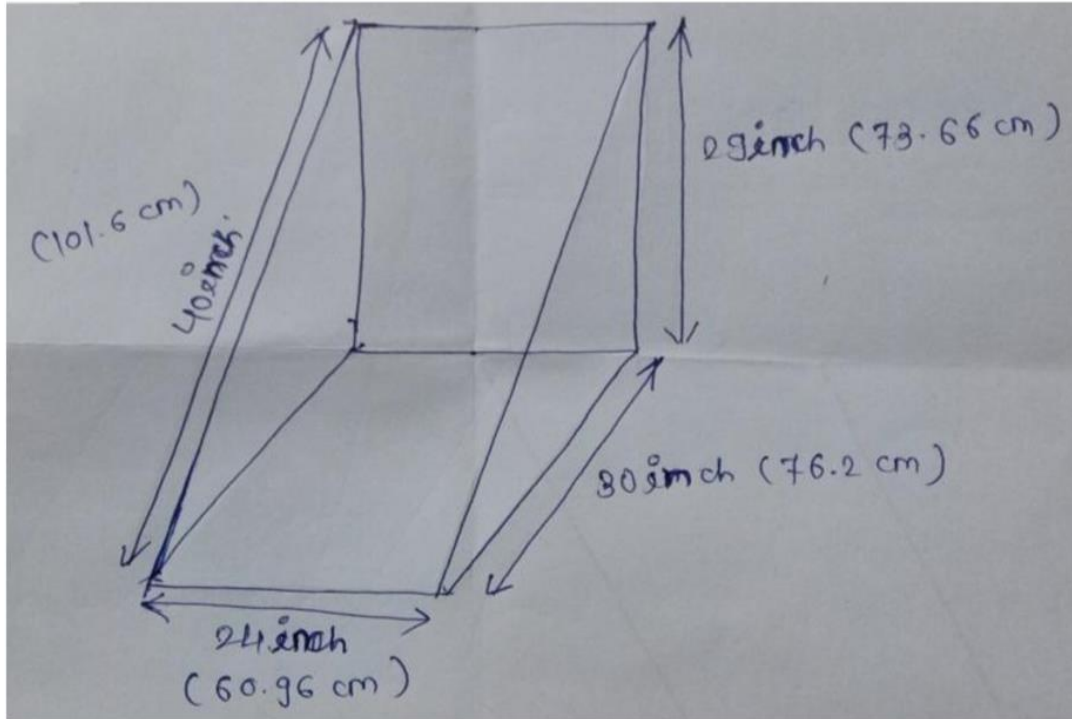 29inch (73.66 cm)
(101.6 cm)
40inch.
30inch (76.2 cm)
24inch
(60.96 cm)